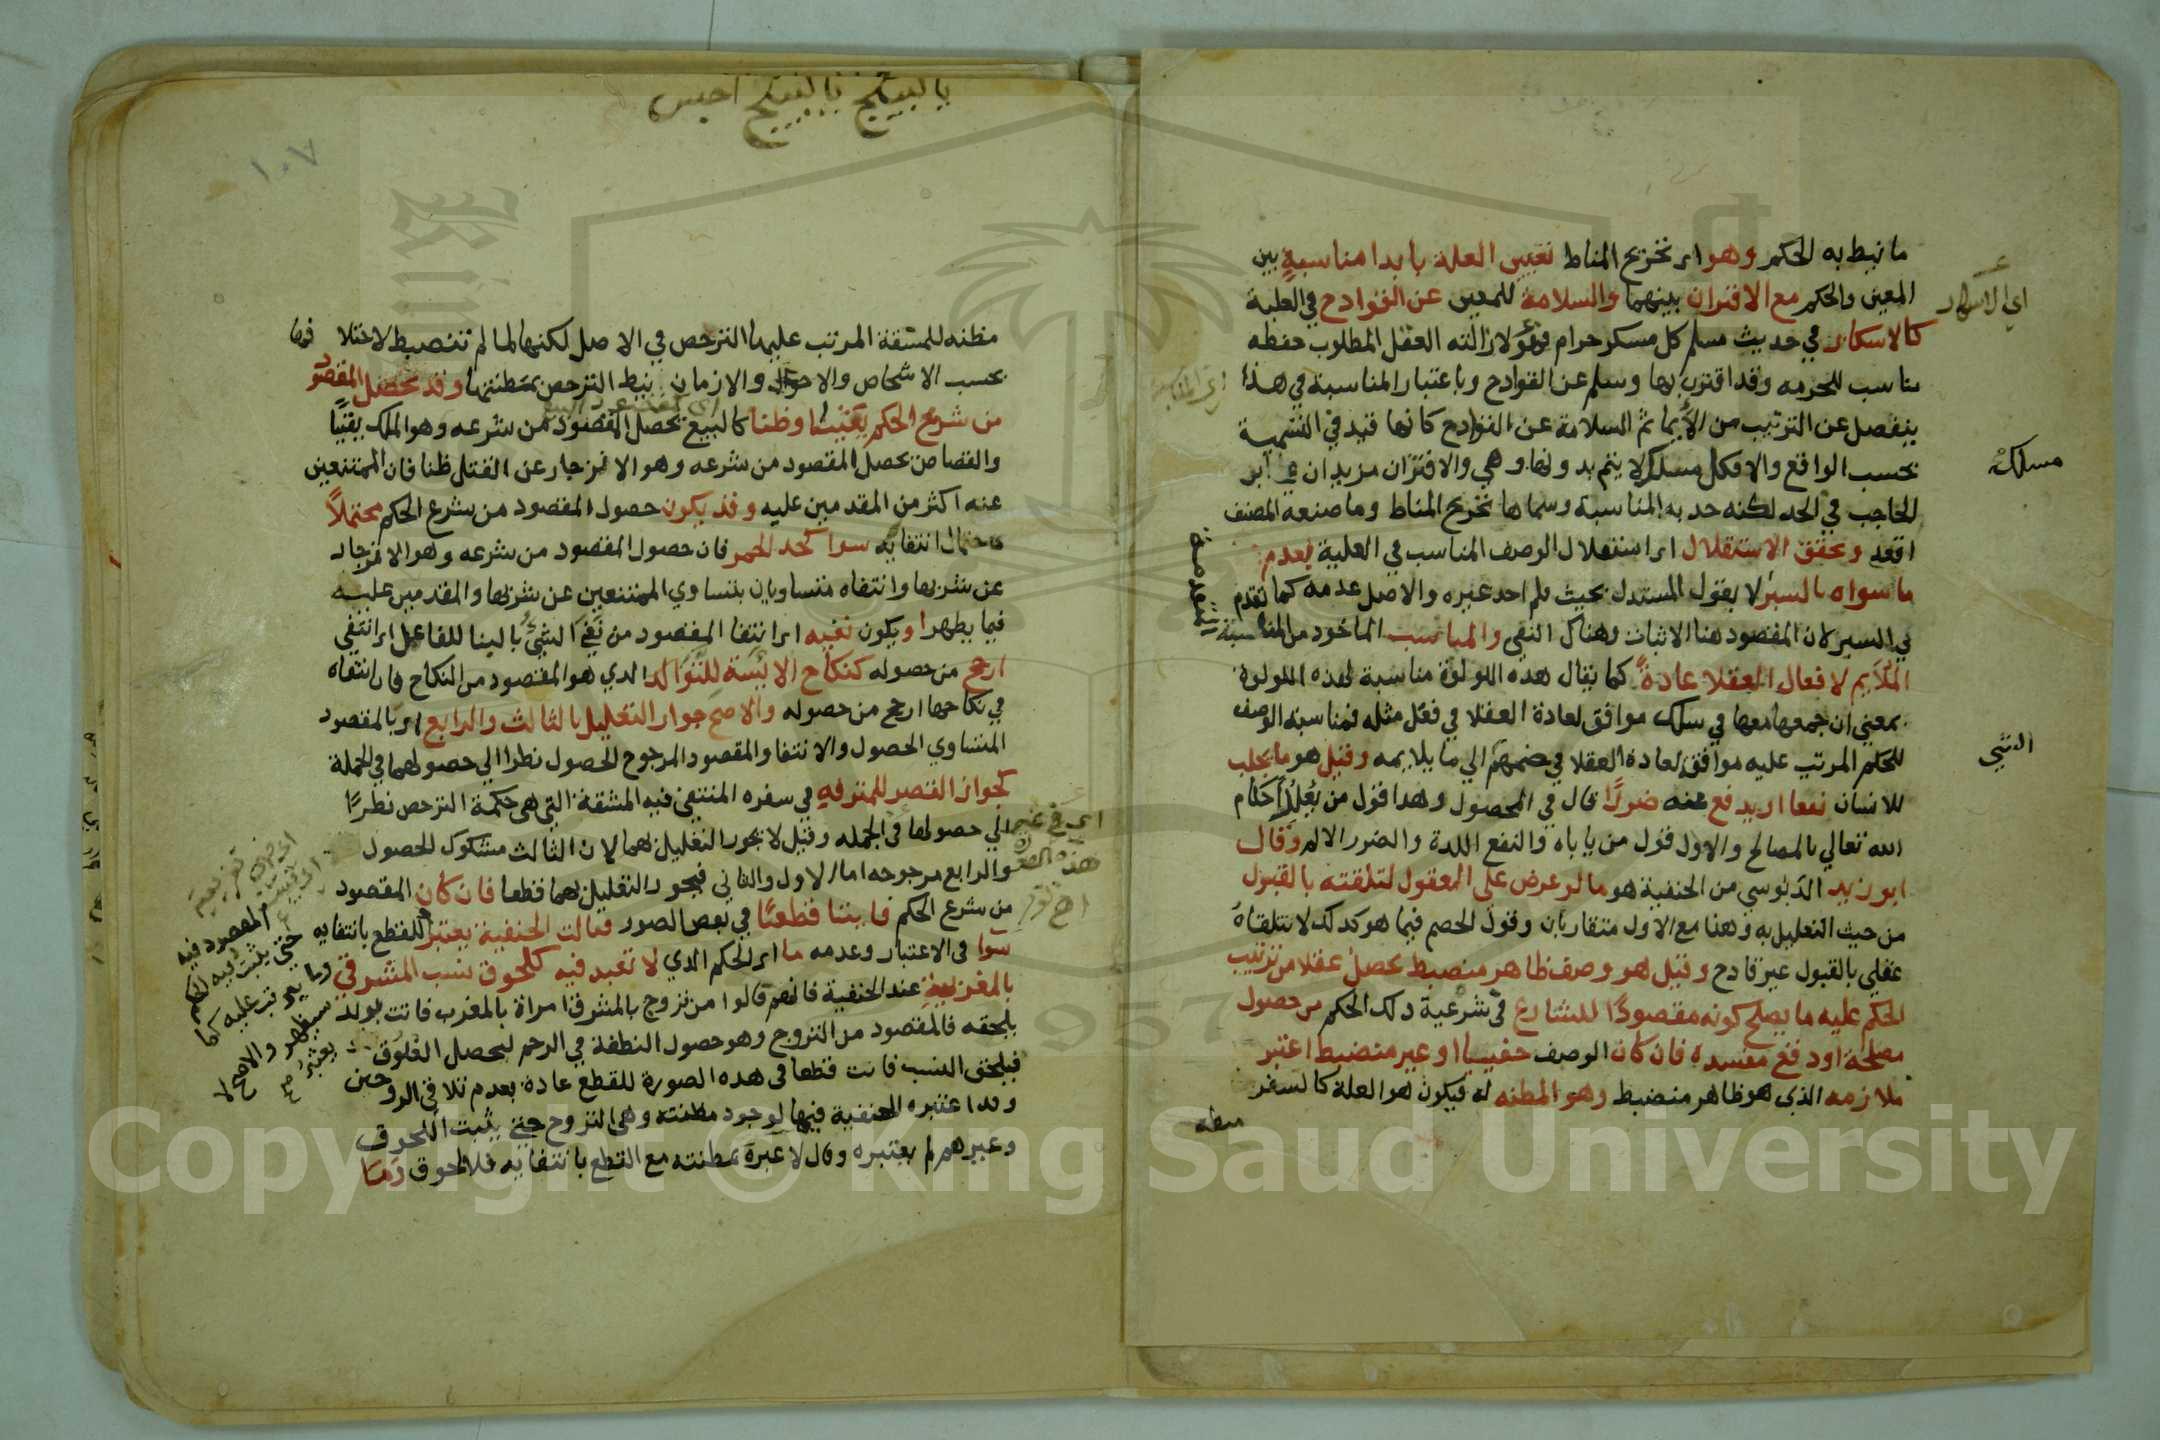 ما نيط به الحكم وهو اى تخريج المناط تعيين العلة بابدا مناسبة بين
المعين والحكم مع الاقتران بينهما والسلامة للمعين عن القوادح في العلية
كالاسكار في حديث مسلم كل مسكر حرام فهو لازالته العقل المطلوب حفظه
مناسب للحرمه وقد اقترن بها وسلم عن القوادح وباعتبار المناسبة في هذا
ينفصل عن الترتيب من الايما ثم السلامة عن القوادح كانها قيد في التسمية
بحسب الواقع والا فكل مسلك لا يتم بدونها وهي والاقتران مزيدان على ابن
الحاجب في الحد لكنه حد به المناسبة وسماها تخريج المناط وما صنعه المصنف
اقعد وتحقق الاستقلال اى استقلال الوصف المناسب في العلية بعدم
ما سواه بالسبر لا بقول المستدل بحثت فلم اجد غيره والاصل عدمه كما تقدم
في السبر لان المقصود هنا الاثبات وهناك النفى والمناسب الماخوذ من المناسبة
الملايم لافعال العقلا عادة كما يقال هذه اللولوة مناسبة لهذه اللولوة
بمعنى ان جمعها معها في سلك موافق لعادة العقلا في فعل مثله فمناسبة الوصف
للحكم المرتب عليه موافق لعادة العقلا في ضمهم الي ما يلايمه وقيل هو ما يجلب
للانسان نفعا او يدفع عنه ضررا قال في المحصول وهذا قول من يعلل احكام
الله تعالي بالمصالح والاول قول من ياباه والنفع اللذة والضرر الالم وقال
ابو زيد الدبوسي من الحنفية هو ما لو عرض على المعقول لتلقته بالقبول
من حيث التعليل به وهذا مع الاول متقاربان وقول الخصم فيما هو كذلك لا تتلقاه
عقلي بالقبول غير قادح وقيل هو وصف ظاهر منضبط يحصل عقلا من ترتيب
الحكم عليه ما يصلح كونه مقصودا للشارع في شرعية ذلك الحكم من حصول
مصلحة او دفع مفسدة فان كان الوصف خفيا او غير منضبط اعتبر
ملازمه الذي هو ظاهر منضبط وهو المظنه له فيكون هو العلة كالسفر
مظنه
اي الاسكار
مسلك
الشي
١٠٧
مظنه للمشقة المرتب عليها الترخص في الاصل لكنها لما لم تنضبط لاختلا فها
بحسب الاشخاص والاحوال والازمان نيط الترخص بمظنتها وقد يحصل المقصود
من شرع الحكم يقينا او ظنا كالبيع يحصل المقصود من شرعه وهو الملك يقينا
والقصاص يحصل المقصود من شرعه وهو الانزجار عن القتل ظنا فان الممتنعين
عنه اكثر من المقدمين عليه وقد يكون حصول المقصود من شرع الحكم محتملا
كاحتمال انتفايه سوا كحد الخمر فان حصول المقصود من شرعه وهو الانزجار
عن شربها وانتفاه متساويان بتساوي الممتنعين عن شربها والمقدمين عليه
فيما يظهر او يكون نفيه اى انتفا المقصود من نفى الشي بالبنا للفاعل اى انتفي
ارجح من حصوله كنكاح الايسة للتوالد الذي هو المقصود من النكاح فان انتفاه
في نكاحها ارجح من حصوله والاصح جواز التعليل بالثالث والرابع اى بالمقصود
المتساوي الحصول والانتفا والمقصود المرجوح الحصول نظرا الي حصولهما في الجملة
كجواز القصر للمترفه في سفره المنتفى فيه المشقة التي هى حكمة الترخص نظرا
الي حصولها في الجمله وقيل لا يجوز التعليل بهما لان الثالث مشكوك الحصول
والرابع مرجوحه اما الاول والثاني فيجوز التعليل بهما قطعا فان كان المقصود
من شرع الحكم فايتا قطعا في بعض الصور فقالت الحنفية يعتبر
سوا في الاعتبار وعدمه ما اى الحكم الذي لا تعبد فيه كلحوق نسب المشرقي
بالمغربية عند الحنفية فانهم قالوا من تزوج بالمشرق امراة بالمغرب فاتت بولد
يلحقه فالمقصود من التزوج وهو حصول النطفة في الرحم ليحصل العلوق
فيلحق النسب فايت قطعا في هذه الصورة للقطع عادة بعدم تلاقي الزوجين
وقد اعتبره الحنفية فيها لوجود مظنته وهى التزوج حتى يثبت اللحوق
وغيرهم لم يعتبره وقال لا عبرة بمظنته مع القطع بانتفايه فلا لحوق وما
المقصود فيه
للقطع بانتفايه
Copyright © King Saud University
1957